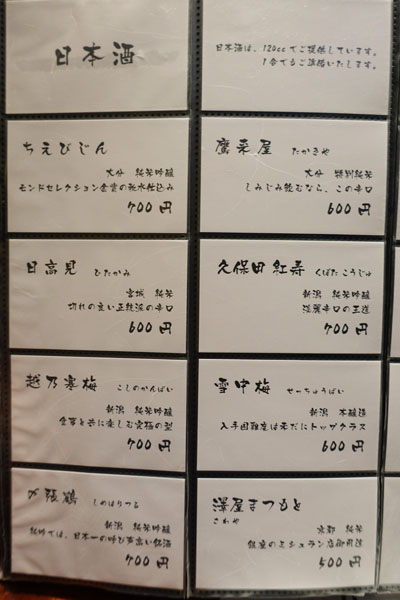 日本酒
日本酒は、120ccでご提供しています。
1合でもご準備いたします。
ちえびじん
大分 純米吟醸
モンドセレクション金賞の氷水仕込み
700円
鷹来屋 たかきや
大分 特別純米
しみじみ飲むなら、この辛口
600円
日高見 ひたかみ
宮城 純米
切れの良い正統派の辛口
600円
久保田 紅寿 くぼた こうじゅ
新潟 純米吟醸
淡麗辛口の王道
700円
越乃寒梅 こしのかんばい
新潟 純米吟醸
食事と共に楽しむ究極の型
700円
雪中梅 せっちゅうばい
新潟 本醸造
入手困難度は未だにトップクラス
600円
〆張鶴 しめはりつる
新潟 純米吟醸
純吟では、日本一の呼び声高い銘酒
700円
澤屋まつもと
さわや
京都 純米
銀座のミシュラン店御用達
500円